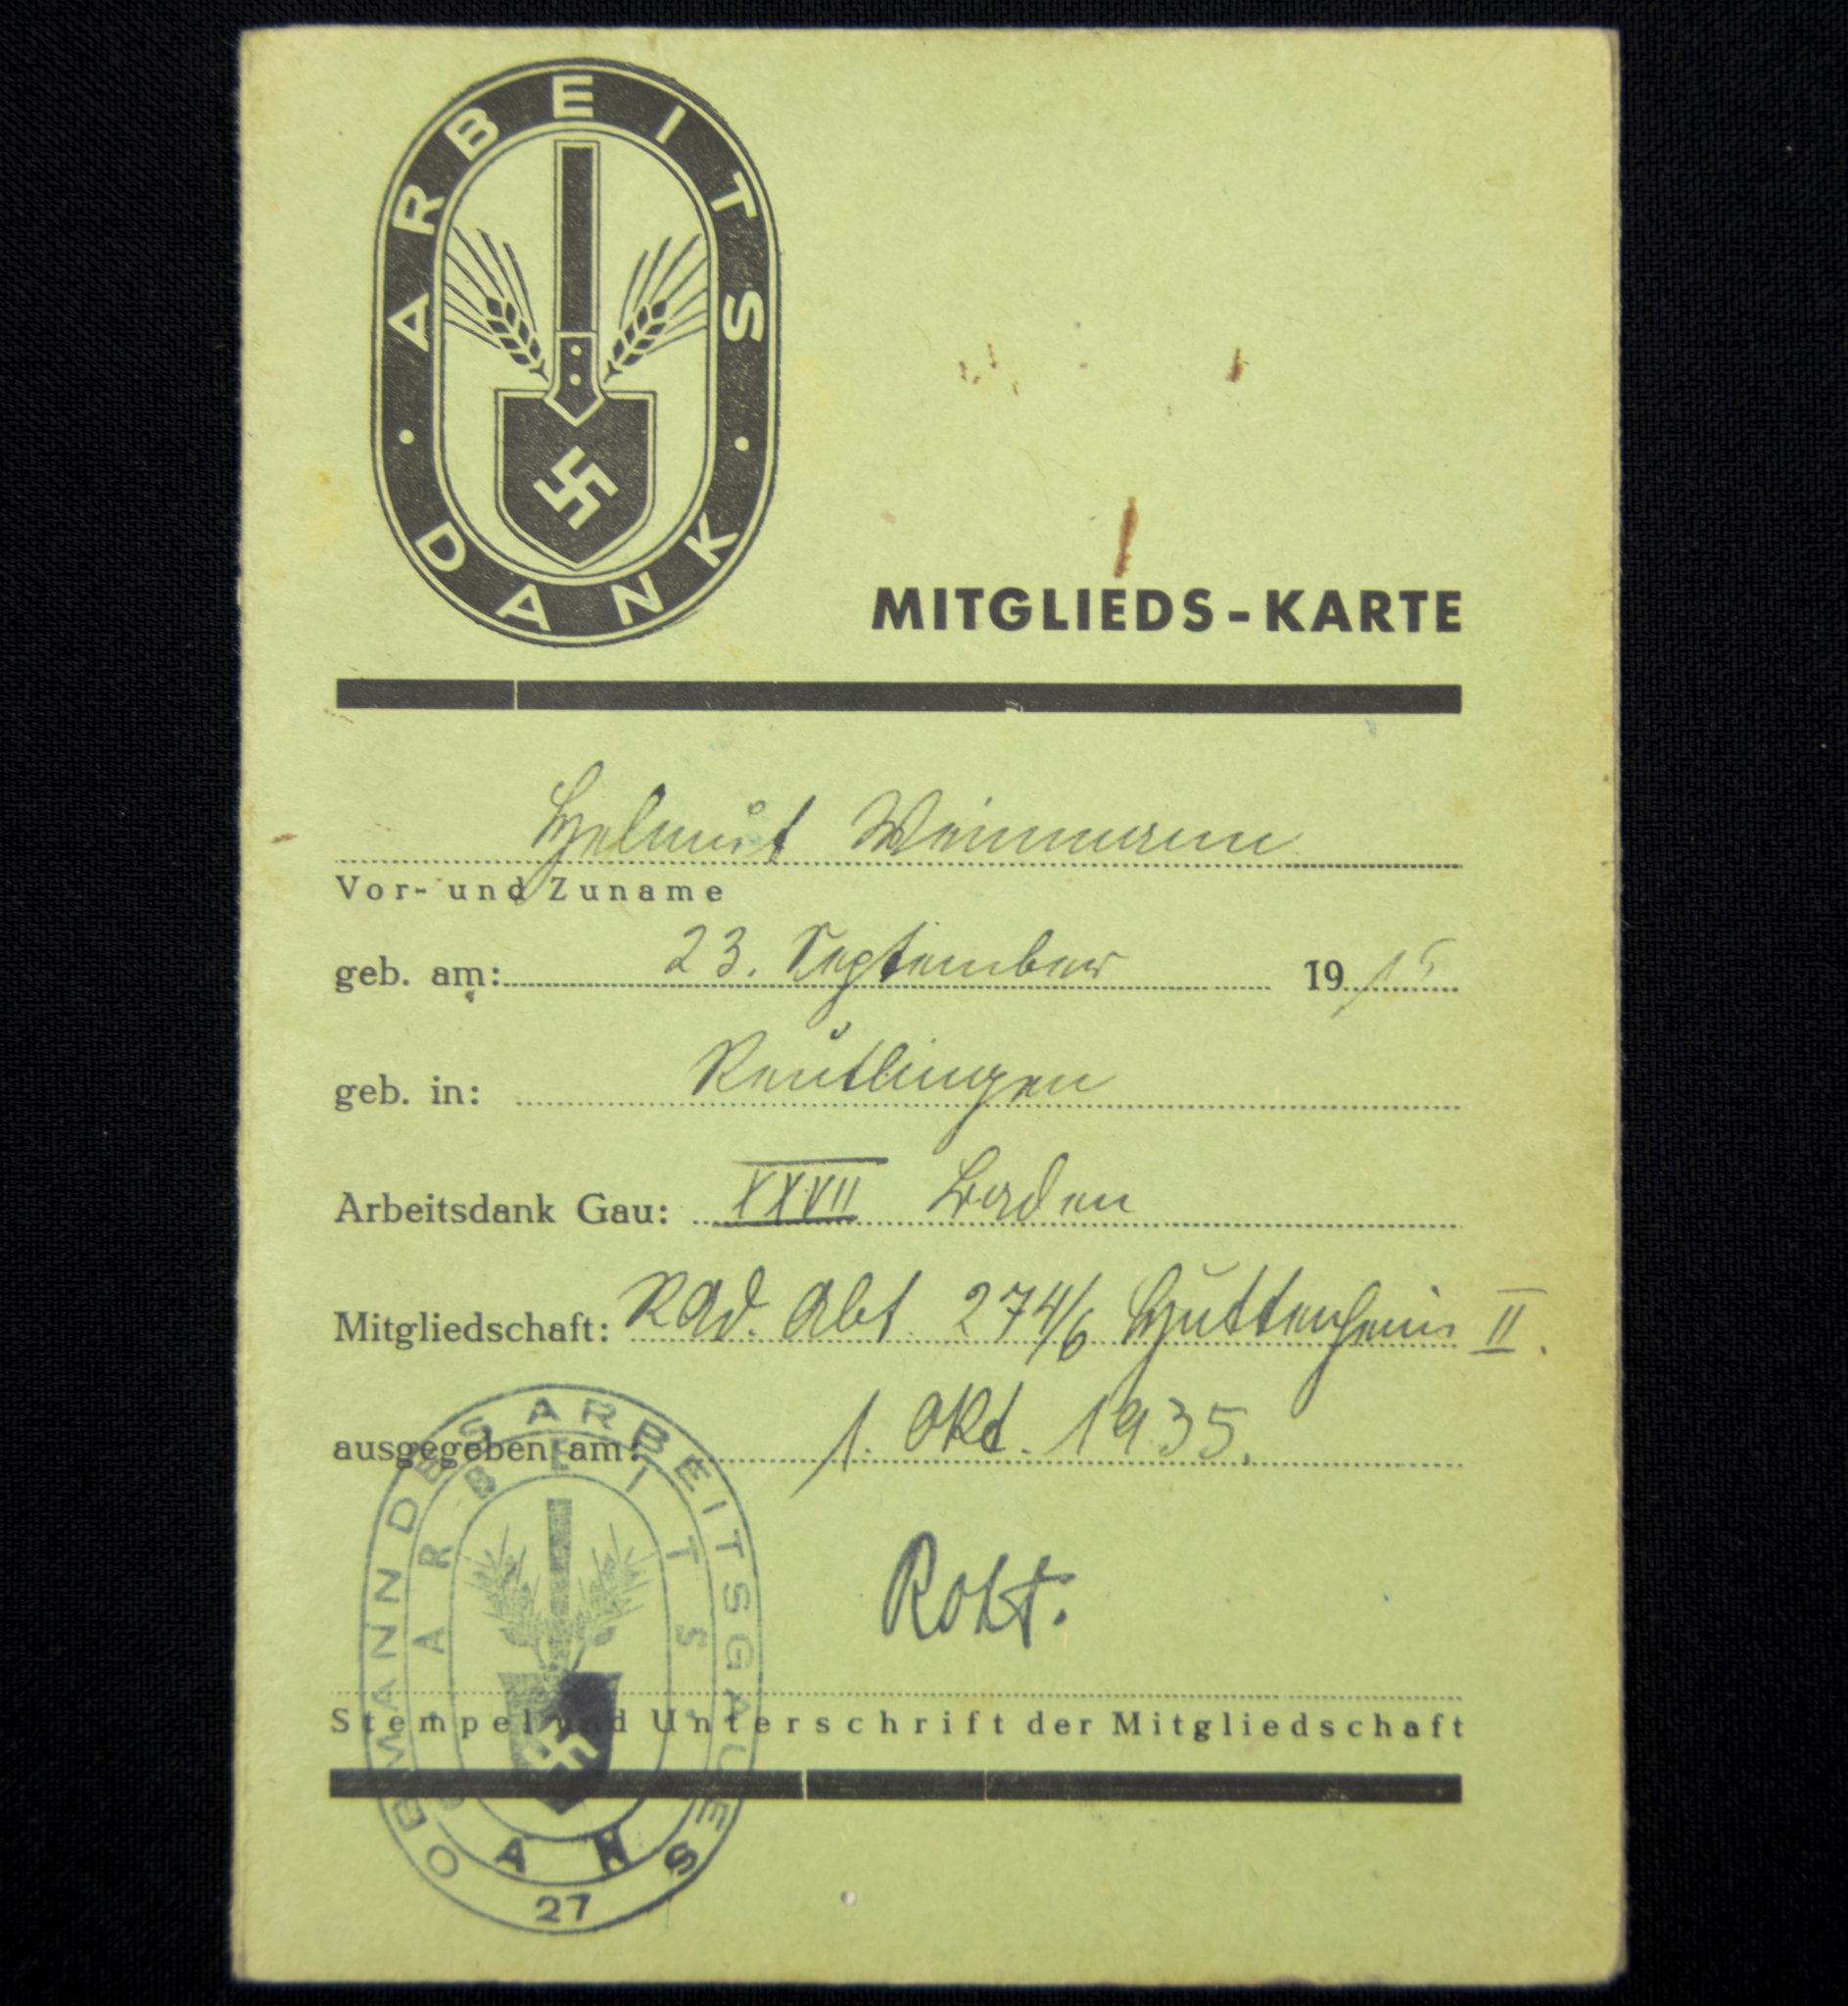 ARBEITS
• DANK •
MITGLIEDS-KARTE
Helmut Weinmann
Vor- und Zuname
geb. am: 23. September 1915
geb. in: Reutlingen
Arbeitsdank Gau: XXVII Baden
Mitgliedschaft: RAd. Abt. 274/6 Huttenheim II.
ausgegeben am: 1. Okt. 1935.
OBMANN DES ARBEITSGAUES
ARBEITS
Stempel und Unterschrift der Mitgliedschaft
27